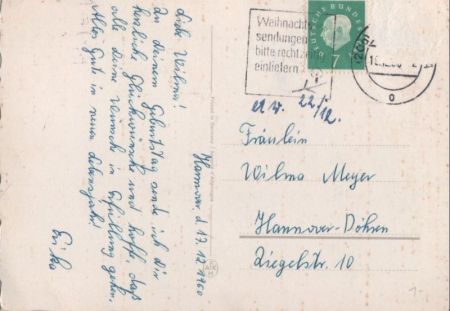 Hannover, d. 17.12.1960
Liebe Wilma!
Zu Deinem Geburtstag sende ich Dir
herzliche Glückwünsche und hoffe, daß
alle Deine Wünsche in Erfüllung gehen.
Alles Gute im neuen Lebensjahr!
Erika
Weihnachts
sendungen
bitte recht zeitig
einliefern
DEUTSCHE BUNDES
7
22./12.
Fräulein
Wilma Meyer
Hannover-Döhren
Ziegelstr. 10